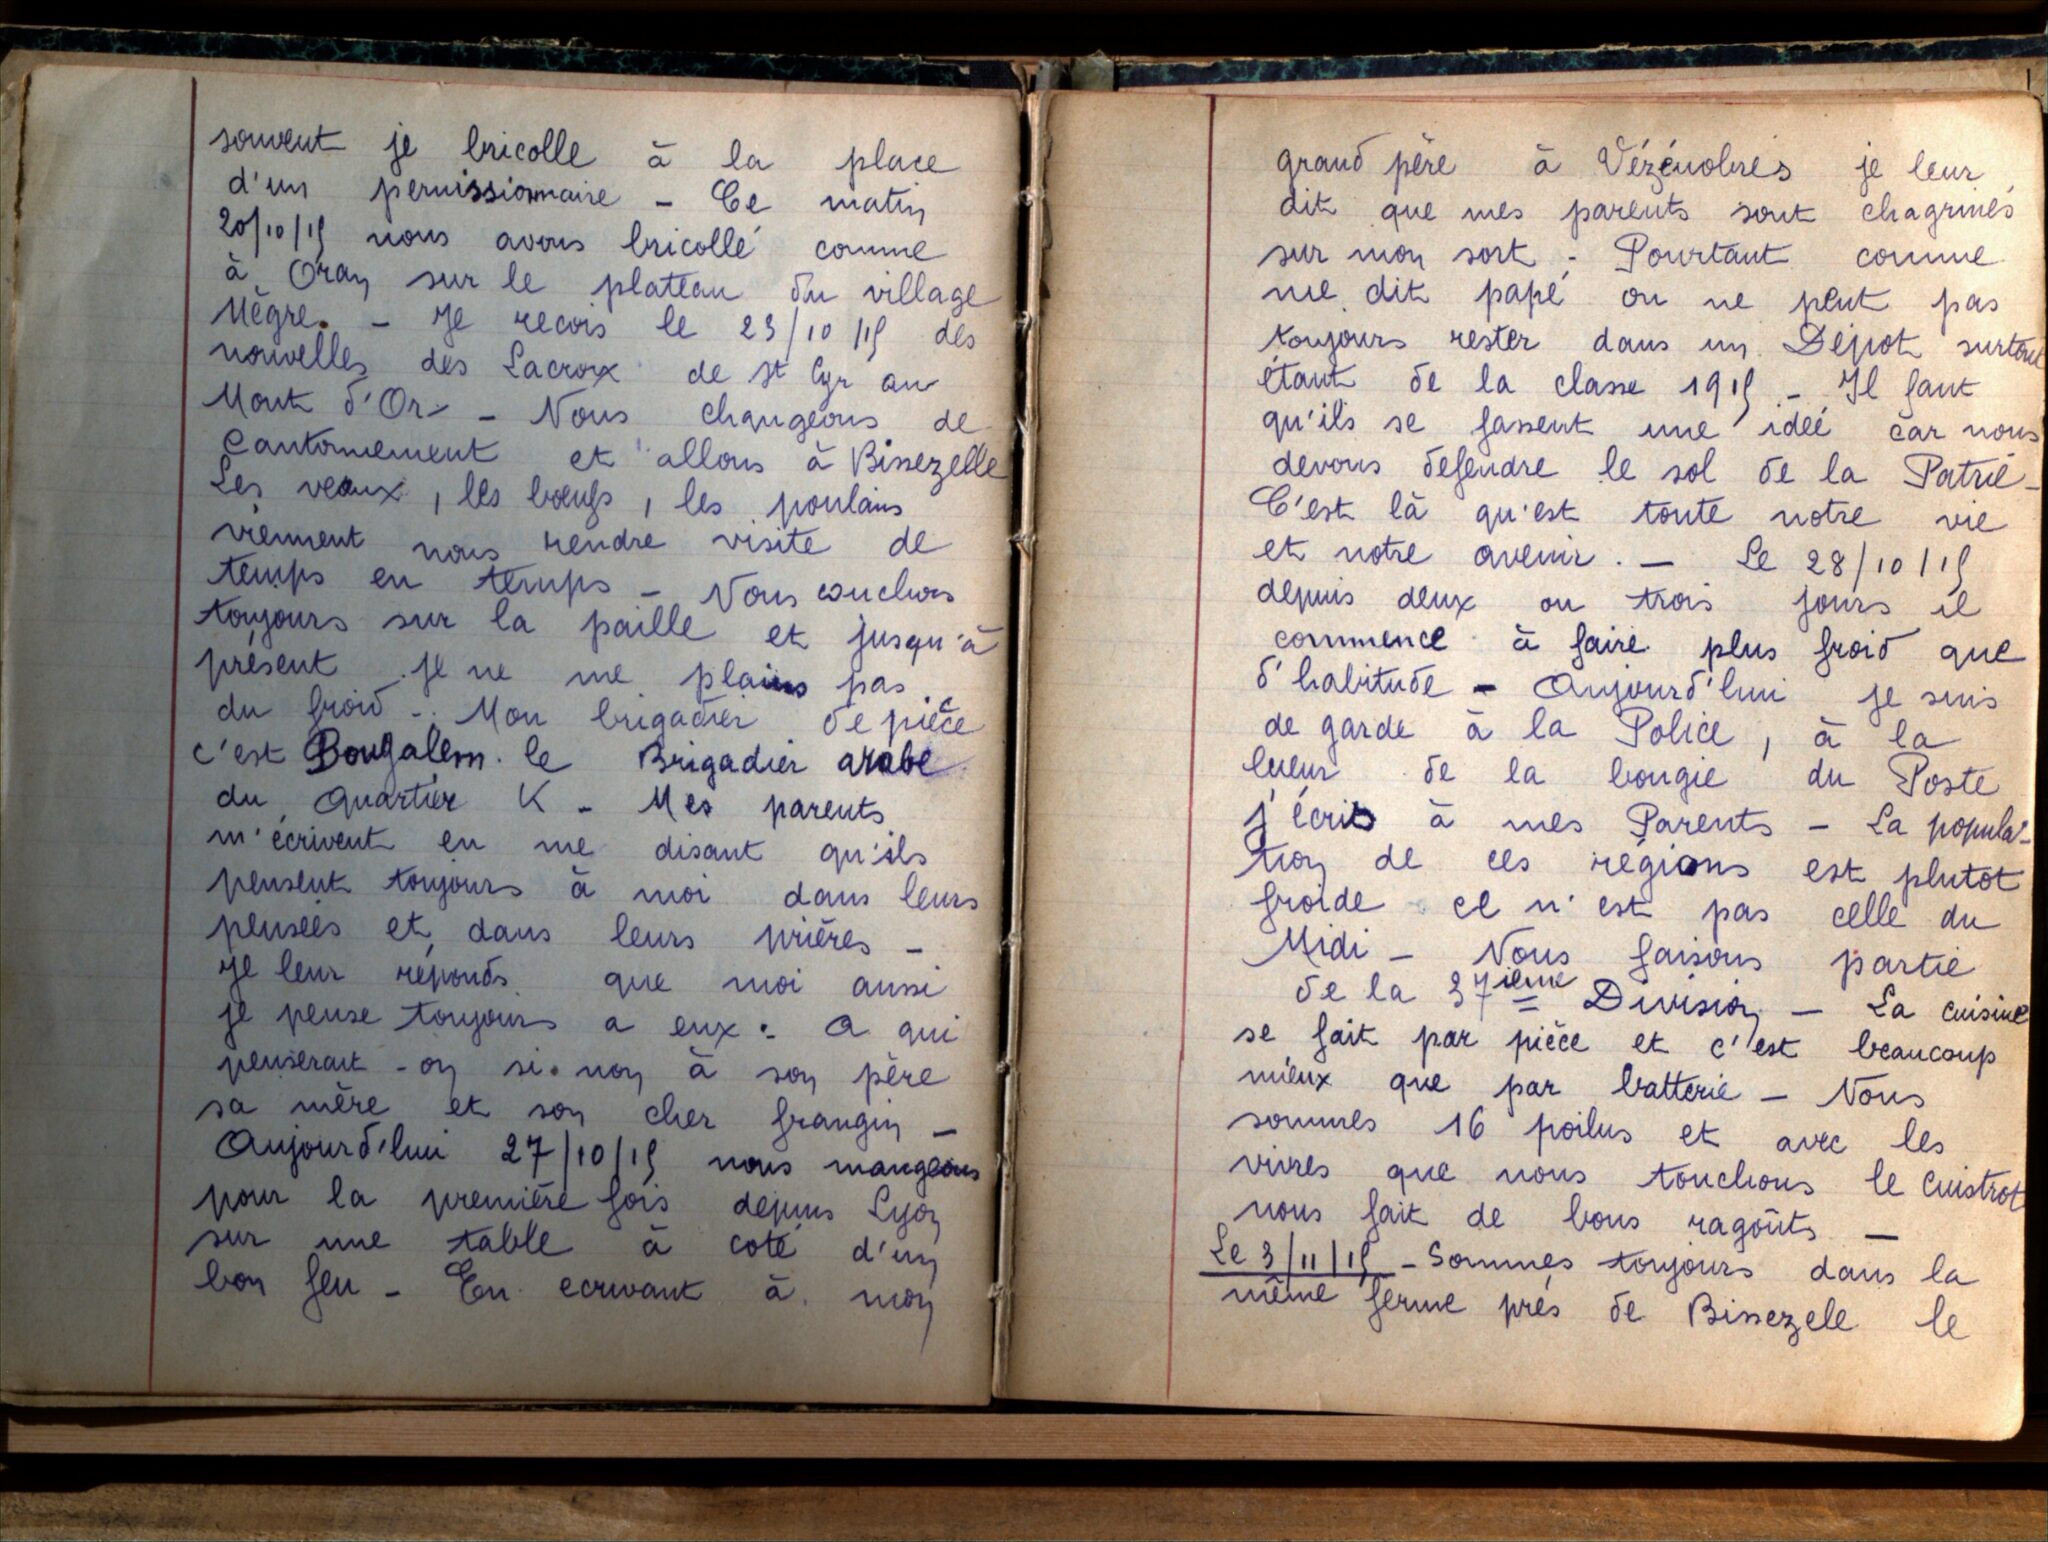 souvent je bricolle à la place
d'un permissionnaire - Ce matin
20/10/15 nous avons bricollé comme
à Oran sur le plateau du village
Nègre. - Je recois le 23/10/15 des
nouvelles des Lacroix de St Cyr au
Mont d'Or - Nous changeons de
Cantonnement et allons à Bissezelle
Les veaux, les bœufs, les poulains
viennent nous rendre visite de
temps en temps - Nous couchons
toujours sur la paille et jusqu'à
présent je ne me plains pas
du froid - Mon brigadier de pièce
c'est Bougalem le Brigadier arabe
du Quartier K - Mes parents
m'écrivent en me disant qu'ils
pensent toujours à moi dans leurs
pensées et dans leurs prières -
Je leur réponds que moi aussi
je pense toujours a eux. A qui
penserait-on si non à son père
sa mère et son cher frangin -
Aujourd'hui 27/10/15 nous mangeons
pour la première fois depuis Lyon
sur une table à coté d'un
bon feu - En ecrivant à mon
grand père à Vézénobres je leur
dit que mes parents sont chagrinés
sur mon sort - Pourtant comme
me dit papé on ne peut pas
toujours rester dans un Dépot surtout
étant de la classe 1915 - Il faut
qu'ils se fassent une idée car nous
devons défendre le sol de la Patrie -
C'est là qu'est toute notre vie
et notre avenir. - Le 28/10/15
depuis deux ou trois jours il
commence à faire plus froid que
d'habitude - Aujourd'hui je suis
de garde à la Police, à la
lueur de la bougie du Poste
j'écris à mes Parents - La popula-
tion de ces régions est plutot
froide ce n'est pas celle du
Midi - Nous faisons partie
de la 37ième Division - La cuisine
se fait par pièce et c'est beaucoup
mieux que par batterie - Nous
sommes 16 poilus et avec les
vivres que nous touchons le cuistrot
nous fait de bons ragoûts -
Le 3/11/15 - Sommes toujours dans la
même ferme près de Bissezele le